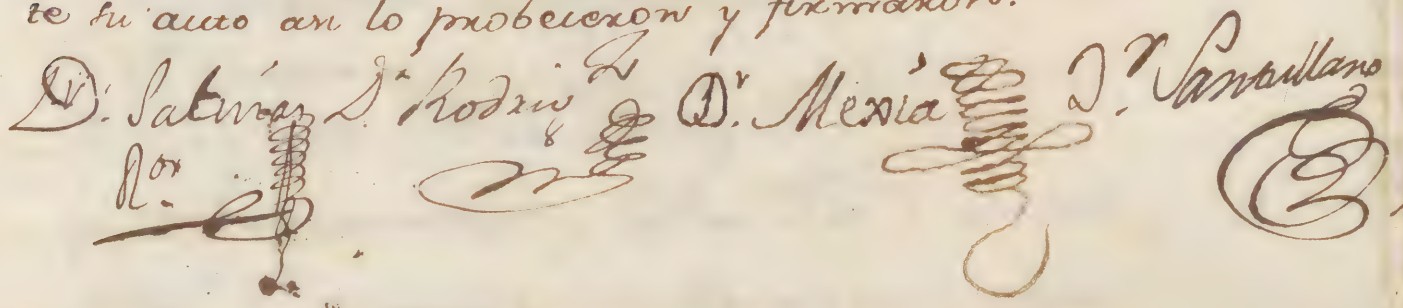 te su auto asi lo probeieron y firmaron.
Dr. Salinas Dr. Rodrigz Dr. Mexia Dr. Santullano
Ror.